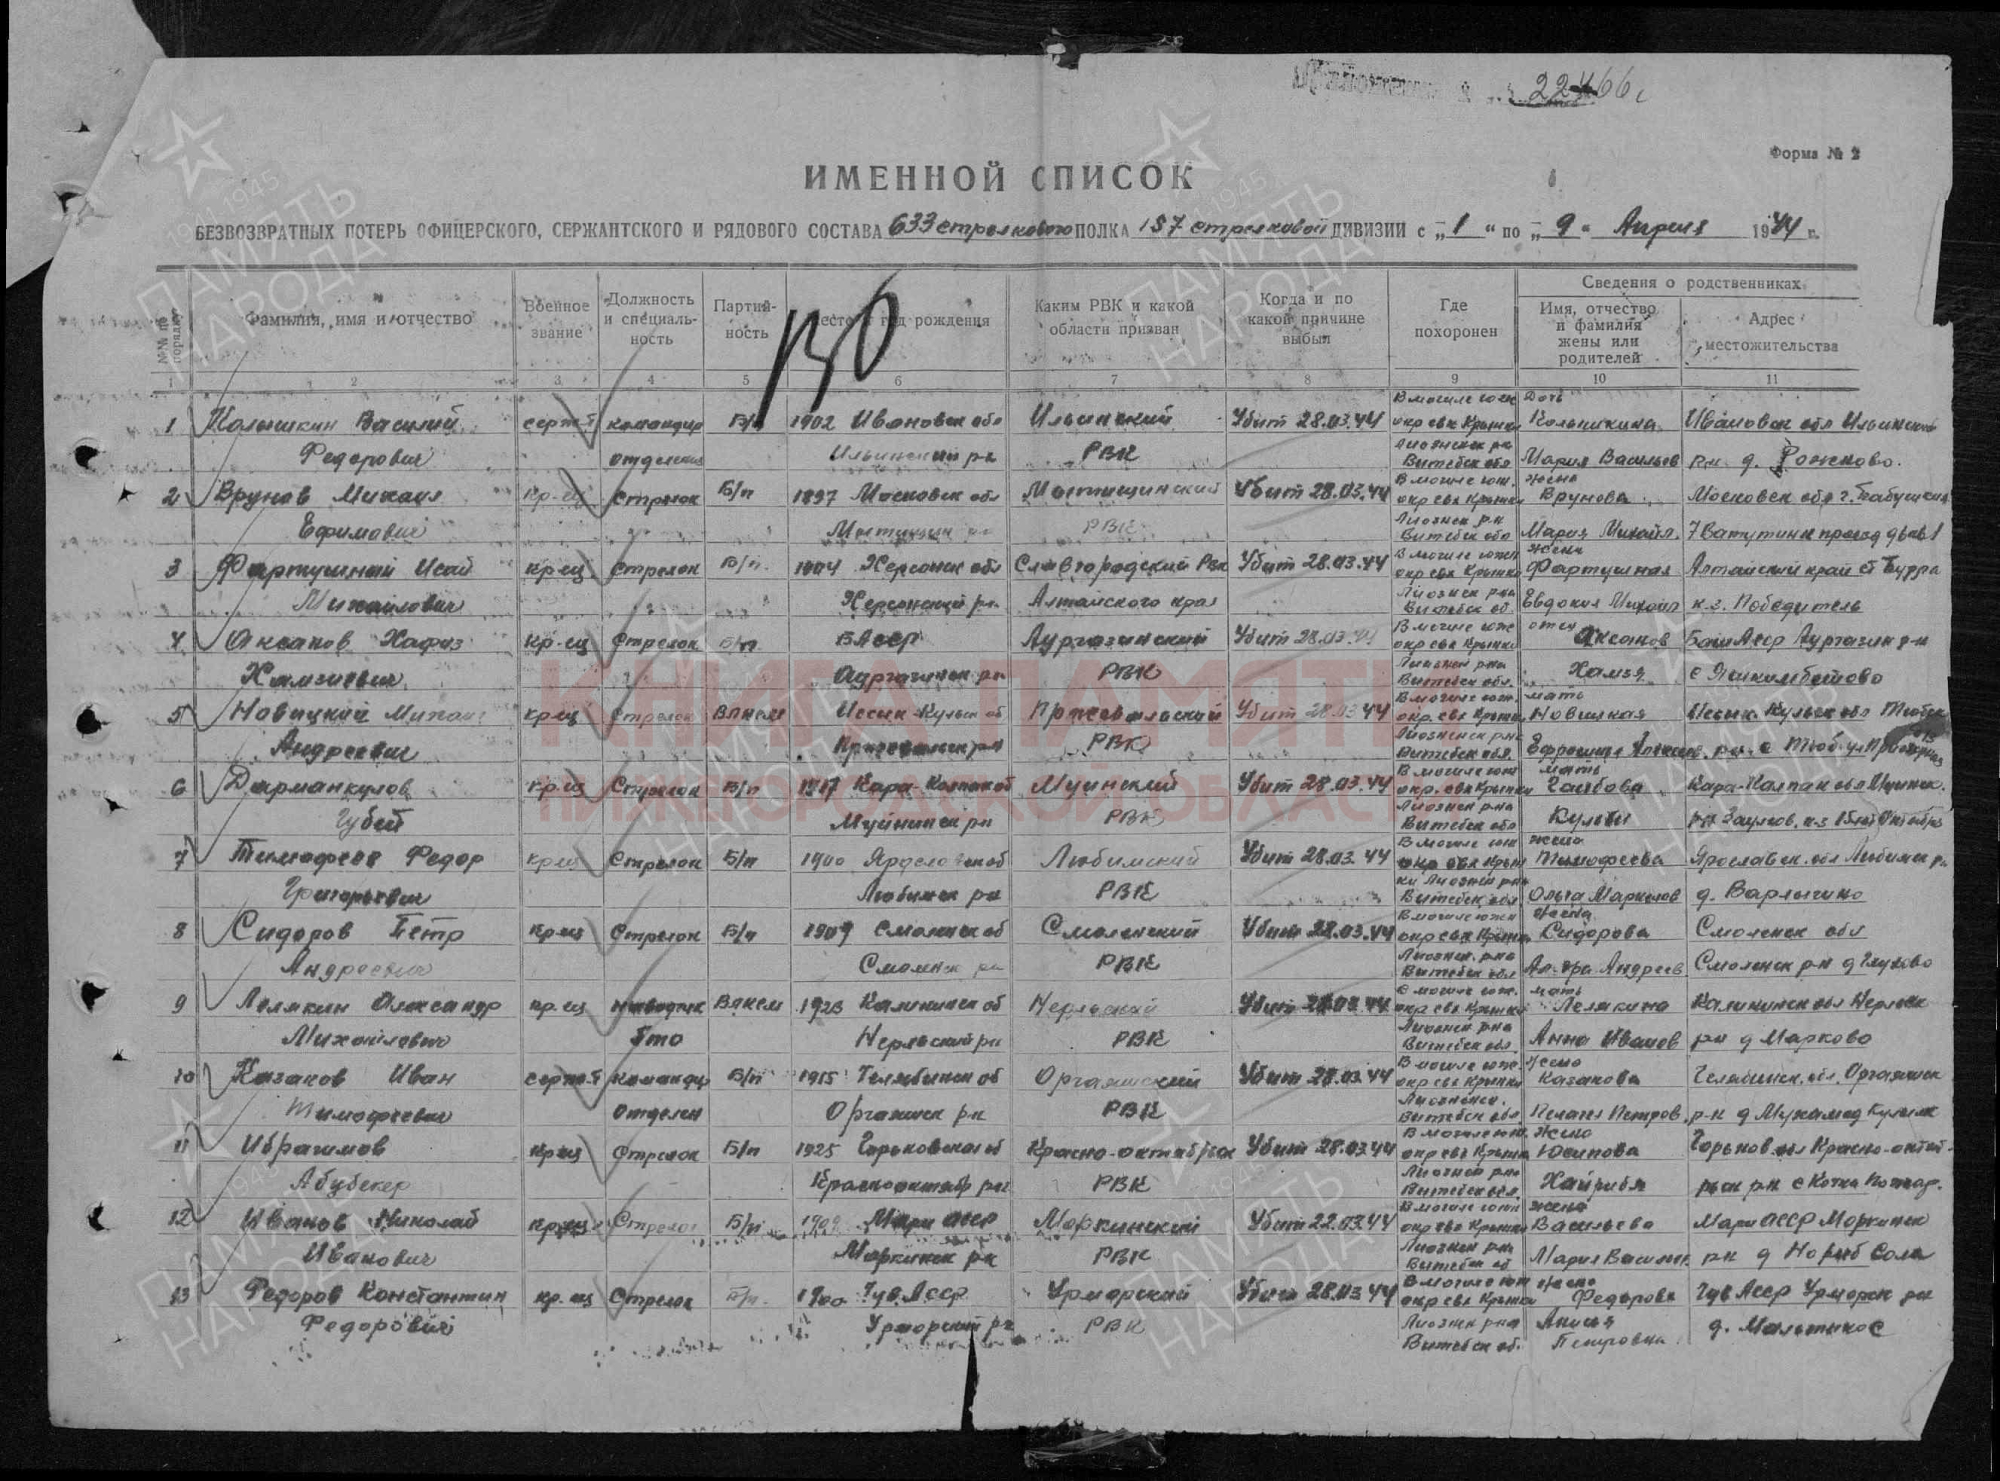 22466с
Форма № 2
ИМЕННОЙ СПИСОК
БЕЗВОЗВРАТНЫХ ПОТЕРЬ ОФИЦЕРСКОГО, СЕРЖАНТСКОГО И РЯДОВОГО СОСТАВА 633 стрелкового ПОЛКА 157 стрелковой ДИВИЗИИ с „1“ по „9“ Апреля 1944 г.
№№ по порядку
Фамилия, имя и отчество
Военное звание
Должность и специальность
Партийность
Место и год рождения
Каким РВК и какой области призван
Когда и по какой причине выбыл
Где похоронен
Сведения о родственниках
Имя, отчество и фамилия жены или родителей
Адрес местожительства
130
1 2 3 4 5 6 7 8 9 10 11
В могиле юж Дочь
1 Колышкин Василий серж-т командир Б/п 1902 Ивановск обл Ильинский Убит 28.03.44 окр свх Крынки Колышкина Ивановск обл Ильинск
Лиознск р-на
Федорович отделения Ильинский р-н РВК Витебск обл Мария Васильев р-н д. Рожново.
В могиле юж. жена
2 Врунов Михаил кр-ец Стрелок Б/п 1897 Московск обл Мытищинский Убит 28.03.44 окр свх Крынки Врунова Московск обл г. Бабушкин
Лиознск р-н
Ефимович РВК Витебск обл Мария Михайл. 7 Ватутинк проезд
В могиле южн жена
3 Фартушный Исай кр-ец Стрелок Б/п. 1904 Херсонск обл Славгородский Рвк Убит 28.03.44 окр свх Крынки Фартушная Алтайский край ст
Лиознск р-на
Михайлович Херсонский р-н Алтайского края Витебск об. Евдокия Михайл к-з. Победитель
В могиле юж отец
4 Аксанов Хафаз кр-ец Стрелок Б/п БАсср Аургазинский Убит 28.03.44 окр свх Крынки Аксанов БашАсср Аургазин р-н
Лиознск р-на
Хамзиевич Аургазинск р-н РВК Витебск обл. Хамзя с
В могиле юж. мать
5 Новицкий Михаил кр-ец Стрелок Влксм Иссык-Кульск об Пржевальский Убит 28.03.44 окр. свх Крынки Новицкая Иссык-Кульск обл
Лиознск р-на
Андреевич Пржевальск р-н РВК Витебск обл. Ефросинья
В могиле юж мать
6 Дарманкулов кр-ец Стрелок Б/п 1917 Кара-Колпак об Муйнский Убит 28.03.44 окр. свх Крынки Гаибова Кара-Калпак обл
Лиознск р-на
Губей Муйнинск р-н РВК Витебск обл
В могиле юж жена
7 Тимофеев Федор кр-ец Стрелок Б/п 1900 Ярославск об Любимский Убит 28.03.44 окр свх Крын Тимофеева Ярославск. обл Любимск р-н
ки Лиознск р-на
Григорьевич Любимск р-н РВК Витебск обл. Ольга д. Варлыгино
В могиле южн жена
8 Сидоров Петр кр-ец Стрелок Б/п 1909 Смоленск об Смоленский Убит 28.03.44 окр свх Крынки Сидорова Смоленск обл
Лиознск. р-на
Андреевич Смоленск р-н РВК Витебск обл Ал-дра Андреев Смоленск р-н д Глухово
В могиле юж. мать
9 Лелякин Александр кр-ец наводчик Влксм 1923 Калининск об Нерльский Убит 28.03.44 окр свх Крынки Лелякина Калининск обл Нерльск
Лиознск р-на
Михайлович Пто Нерльский р-н РВК Витебск обл. Анна Иванов р-н д Марково
В могиле юж. жена
10 Казаков Иван серж-т командир Б/п 1915 Челябинск об Аргаяшский Убит 28.03.44 окр свх Крынки Казакова Челябинск. обл. Аргаяшск
Лиознск.
Тимофеевич отделен Аргаяшск р-н РВК Витебск обл Пелагея Петров. р-н д
В могиле юж. жена
11 Ибрагимов кр-ец Стрелок Б/п 1925 Горьковская об Красно-октябрьск Убит 28.03.44 окр свх Крынки Юсипова Горьков обл Красно-октяб-
Лиознск р-на
Абубекер Краснооктябр р-н РВК Витебск обл. Хайрибя рьск р-н с
В могиле южн жена
12 Иванов Николай кр-ец Стрелок Б/п 1902 Мари АССР Моркинский Убит 22.03.44 окр свх Крынки Васильева Мари АССР Моркинск
Лиознск р-на
Иванович Моркинск р-н РВК Витебск об Мария Васильев. р-н д
В могиле юж жена
13 Федоров Константин кр-ец Стрелок Б/п. 1900 Чув. Асср Урмарский Убит 28.03.44 окр свх Крынки Федорова Чув Асср Урмарск р-н
Федорович Урмарский р-н РВК Лиознск р-на Анисья
Витебск об. Петровна
ПАМЯТЬ НАРОДА
1941-1945
КНИГА ПАМЯТИ
НИЖЕГОРОДСКОЙ ОБЛАСТИ